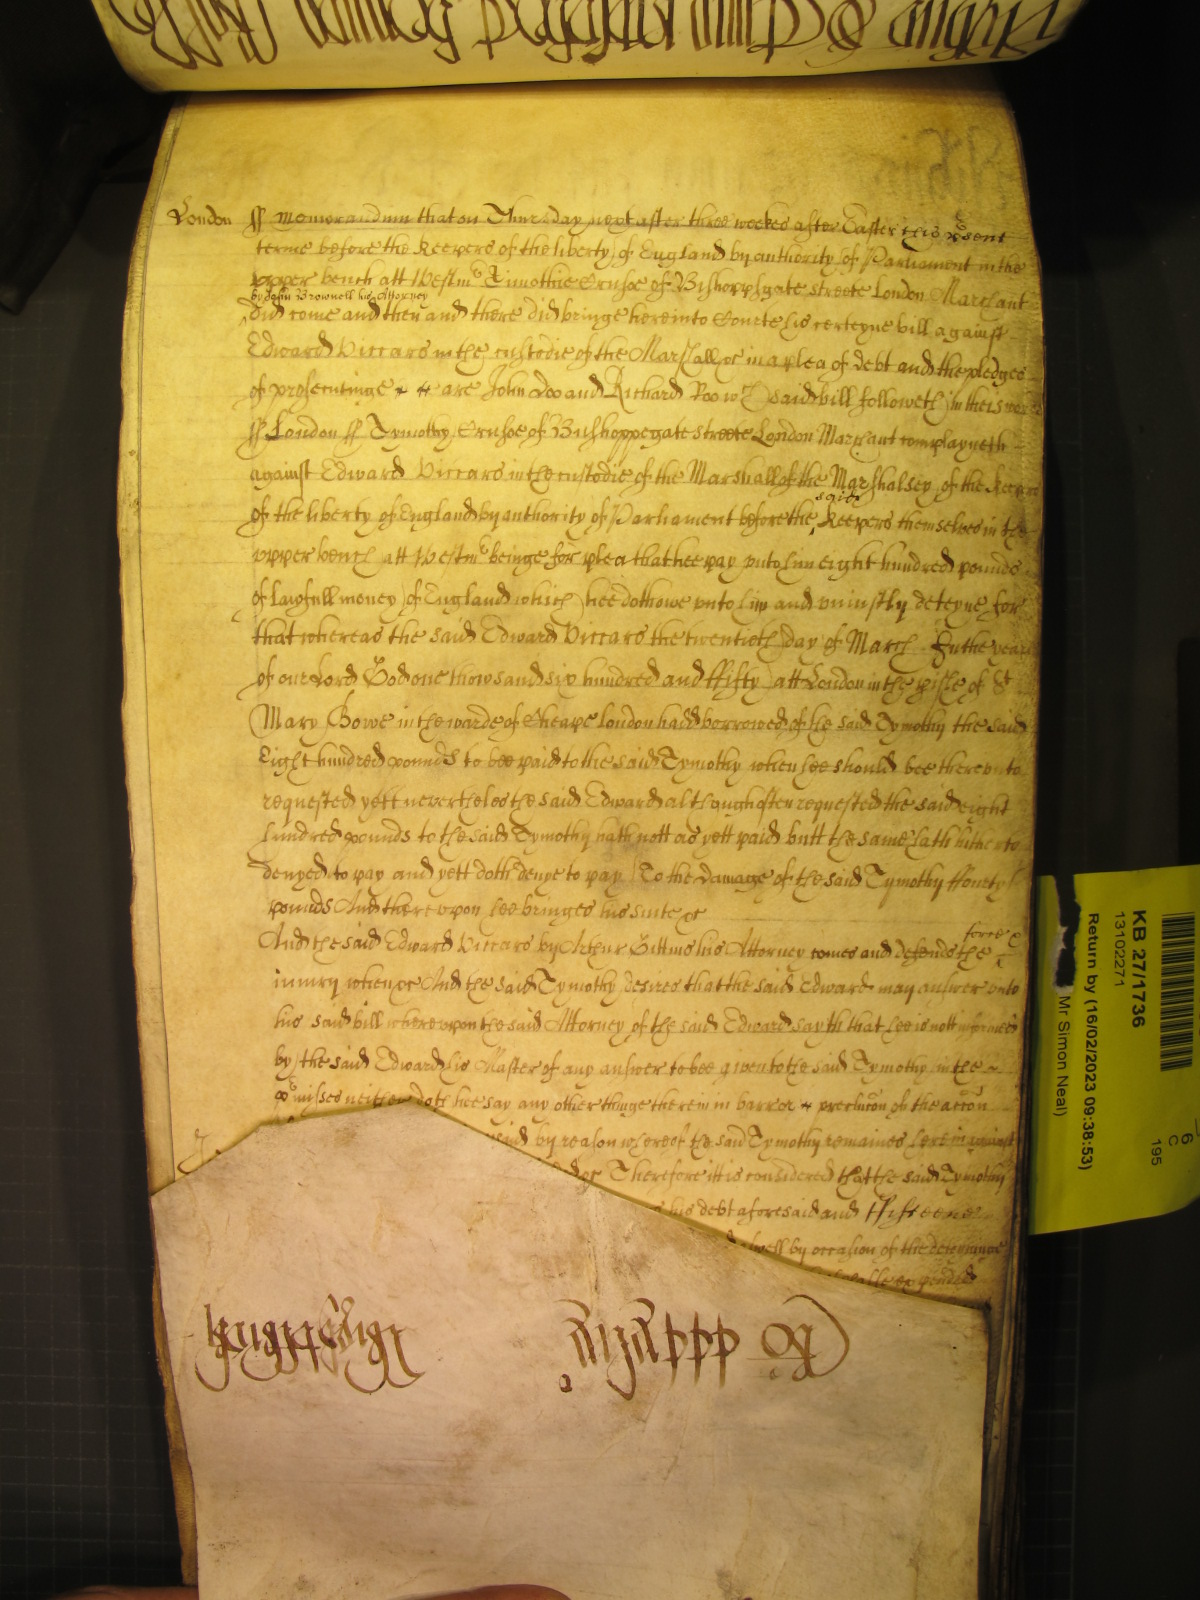 London ss Memorandum that on Thursday next after three weekes after Easter this psent
terme before the Keepers of the liberty of England by authority of Parliament in the
vpper bench att Westmr Timothie Crusoe of Bishoppsgate streete London Marchant
by John Brownell his Attorney
did come and then and there did bringe here into Courte his certeyne bill against
Edward Viccars in the custodie of the Marshall &c in a plea of debt and the pledges
of prosecutinge are John Doo and Richard Roo wch said bill followeth in theis
ss London ss Tymothy Crusoe of Bushoppegate streete London Marchant complayneth
against Edward Viccars in the custodie of the Marshall of the Marshalsey of the Keepers
said
of the liberty of England by authority of Parliament before the Keepers themselves in the
vpper bench att Westmr beinge for plea that hee pay vnto him eight hundred pounds
of lawfull money of England which hee doth owe vnto him and vniustly deteyne for
that whereas the said Edward Viccars the twentieth day of March In the yeare
of our Lord God one thowsand six hundred and ffifty att London in the pishe of St
Mary Bowe in the warde of Cheape London hadd borrowed of the said Tymothy the said
Eight hundred pounds to bee paid to the said Tymothy when hee should bee therevnto
requested yett neverthelesthe said Edward although often requested the said eight
hundred pounds to the said Tymothy hath nott as yett paid butt the same hath hitherto
denyed to pay and yett doth denye to pay To the damage of the said Tymothy
pounds And therevpon hee bringes his suite &c
force &
And the said Edward Viccars by Arthur Gittins his Attorney comes and defends the
iniury when &c And the said Tymothy desires that the said Edward may answer vnto
his said bill wherevpon the said Attorney of the said Edward sayth that hee is nott informed
by the said Edward his Master of any answer to bee given to the said Tymothy in the
pmisses neither doth hee say any other thinge therein in barre or preclucon of the accon
said by reason whereof the said Tymothy remaines here in against
Therefore itt is considered that the said Tymothy
his debt aforesaid and ffifteene
aswell by occasion of the deteyninge
KB 27/1736
13102271
Return by (16/02/2023 09:38:53)
Mr Simon Neal)
6
C
195